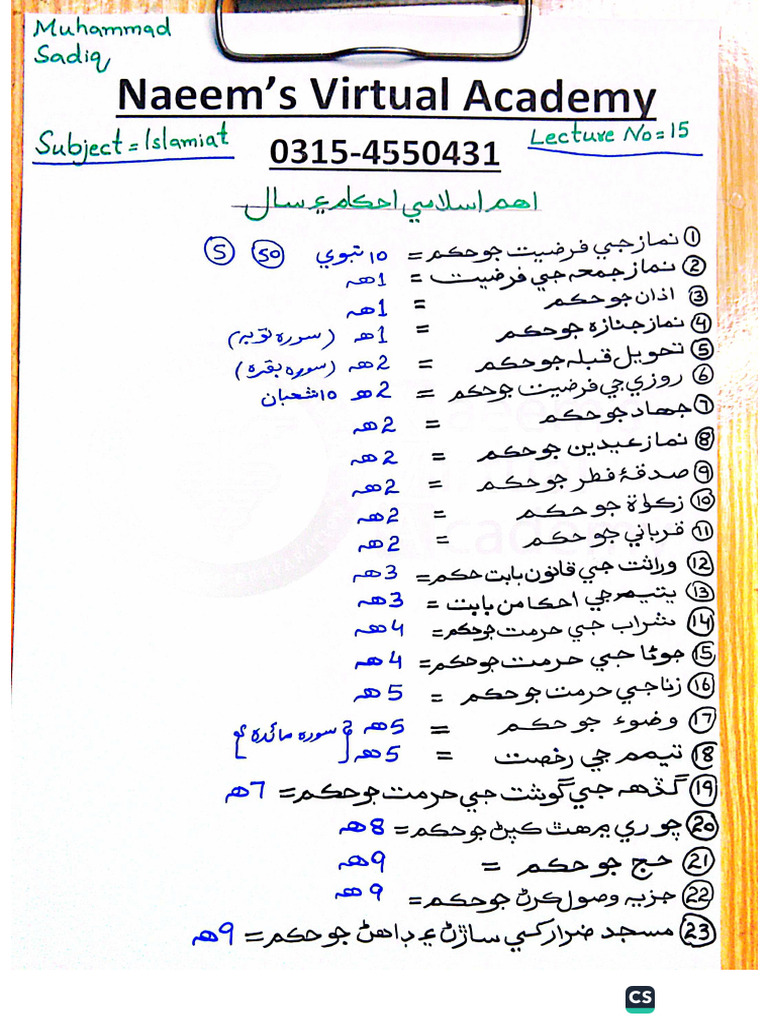 Muhammad
Sadiq
Naeem's Virtual Academy
Subject = Islamiat
0315-4550431
Lecture No = 15
اهم اسلامي احڪام ۽ سال
① نماز جي فرضيت جو حڪم = 10 نبوي 50 5
② نماز جمعہ جي فرضيت = 1هہ
③ اذان جو حڪم = 1هہ
④ نماز جنازہ جو حڪم = 1هہ (سورہ توبہ)
⑤ تحويل قبلہ جو حڪم = 2هہ (سورہ بقرہ)
⑥ روزي جي فرضيت جو حڪم = 2هہ 10 شعبان
⑦ جهاد جو حڪم = 2هہ
⑧ نماز عيدين جو حڪم = 2هہ
⑨ صدقۂ فطر جو حڪم = 2هہ
⑩ زڪواة جو حڪم = 2هہ
⑪ قرباني جو حڪم = 2هہ
⑫ وراثت جي قانون بابت حڪم = 3هہ
⑬ يتيمر جي احڪامن بابت = 3هہ
⑭ شراب جي حرمت جو حڪم = 4هہ
⑮ جوئا جي حرمت جو حڪم = 4هہ
⑯ زنا جي حرمت جو حڪم = 5هہ
⑰ وضوء جو حڪم = 5هہ
⑱ تيمم جي رخصت = 5هہ
سورہ مائدة
⑲ گڏهہ جي گوشت جي حرمت جو حڪم = 7هہ
⑳ چوري ۾ هٿ ڪپڻ جو حڪم = 8هہ
㉑ حج جو حڪم = 9هہ
㉒ جزيہ وصول ڪرڻ جو حڪم = 9هہ
㉓ مسجد ضرار کي ساڙڻ ۽ ڊاهڻ جو حڪم = 9هہ
CS